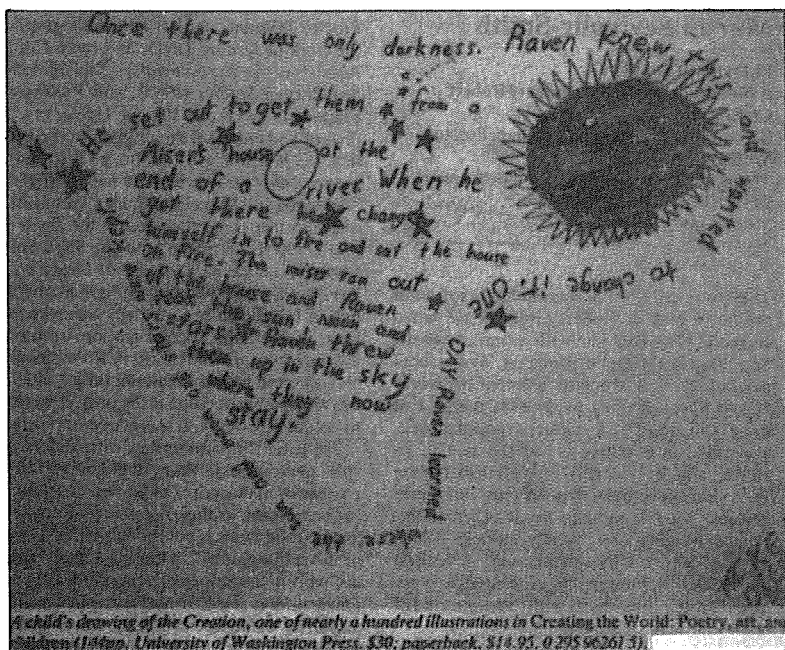 Once there was only darkness. Raven knew this
and wanted
to change it. One
DAY Raven learned
where the sun and moon and stars were kept.
He set out to get them from a
Miser's house at the
end of a river. When he
got there he changed
himself in to fire and set the house
on fire. The miser ran out
of the house and Raven
took the sun moon and
stars. Raven threw
them up in the sky
where they now
stay.
A child's drawing of the Creation, one of nearly a hundred illustrations in Creating the World: Poetry, art, and
children (144pp. University of Washington Press. $30; paperback, $14.95. 0 295 96261 5).